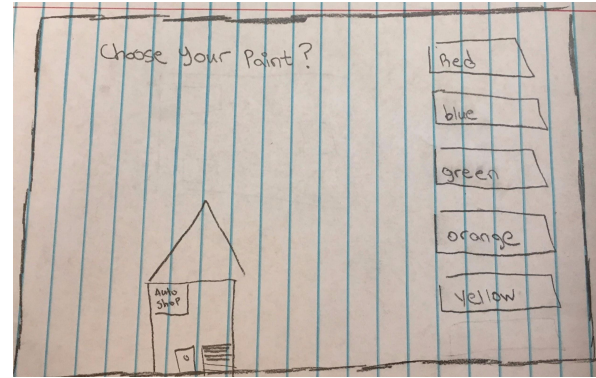 Choose Your Paint?
Red
blue
green
orange
yellow
Auto
Shop